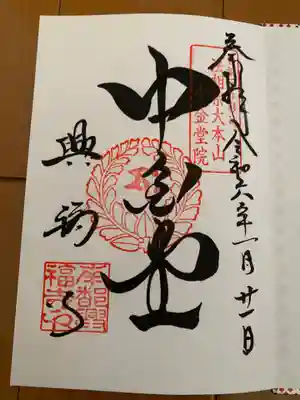 奉拝 令和六年一月廿一日
法相宗大本山
中金堂院
中金堂
興福寺
南都興
福寺